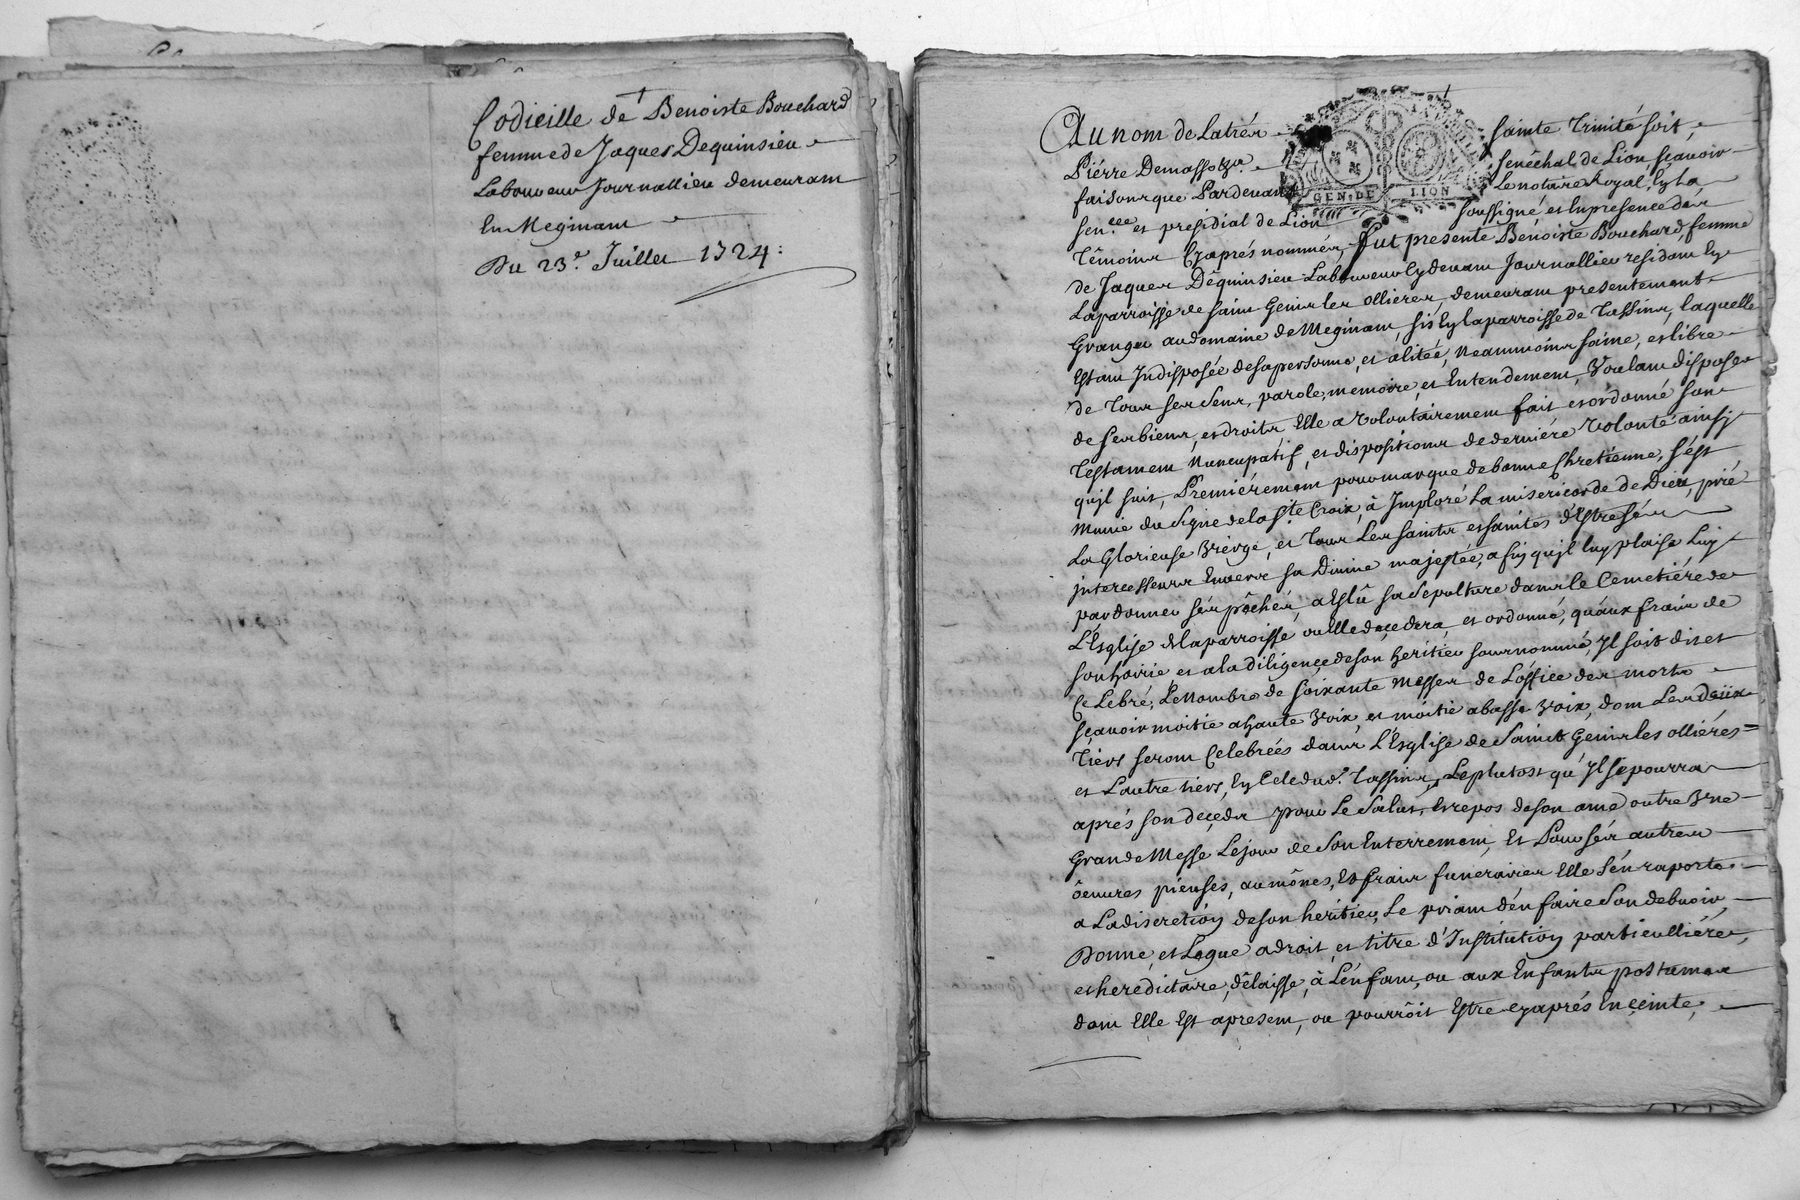 Codicille de Benoiste Bouchard
femme de Jaques Dequinsieu
Laboureur Journallier demeurant
En Meginant
Du 23e. Juillet 1724:
Au nom de La trés sainte Trinité soit,
Pierre Demasso senéchal de Lion sçavoir
faisons que Pardevant Le notaire Royal, En La
sen.ée et presidial de Lion soussigné et En presence des
Témoins Cyaprés nommés, fut presente Benoiste Bouchard, femme
de Jaques Déquinsieu Laboureur Cydevant Journallier residant En
La parroisse de saint Genis les ollieres, demeurant presentement
Granger au domaine de Meginant, sis En la parroisse de Tassins, laquelle
Estant Indisposée de sa personne, et alitée, neanmoins saine, et libre
de Tous ses sens, parole, memoire, et Entendement, Voulant disposer
de ses biens, et droits Elle a volontairement fait et ordonné son
Testament Nuncupatif, et dispositions de derniére volonté ainsy
qu'jl suit, Premiérement pour marque de bonne Chretienne, s'est
Munie du Signe de la Ste. Croix, à Imploré La misericorde de Dieu, prié
La Glorieuse Vierge, et Tous Les saints et saintes d'Estre sés
jntercesseurs Envers sa Divine majestée, afin qu'jl luy plaise Luy
pardonner sés péchés, a Eslû sa sepulture dans le Cemetiére de
L'Esglise de la parroisse ou Elle decedera, et ordonné, qu'aux frais de
son hoirie et a la diligence de son heritier sousnommé, Jl soit dit et
Celebré, Le Nombre de soixante Messes de L'office des morts
sçavoir moitié a haute Voix, et moitié a basse Voix, dont Les deux
Tiers seront Celebrées dans L'Esglise de Sainct Genis les olliéres
et L'autre tiers, En Cele dud. Tassins, Le plutost qu'Jl se pourra
aprés son deçeds pour Le Salut, Et repos de son ame outre Vne
Grande Messe Le jour de Son Enterrement, Et Pour sés autres
oeuvres pieuses, aumônes, Et frais funeraires Elle s'en raporte
a La discretion de son heritier, Le priant d'en faire Son debuoir,
Donne, et Legue a droit, et titre d'Institution particulliére,
et heredictaire, délaisse, à L'enfant, ou aux Enfants postumes
dont Elle Est apresent, ou pourroit Estre cyaprés Enceinte,
GEN. DE LION